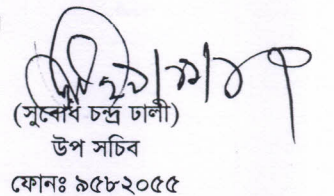 (সুবোধ চন্দ্র ঢালী)
উপ সচিব
ফোনঃ ৯৫৮২০৫৫